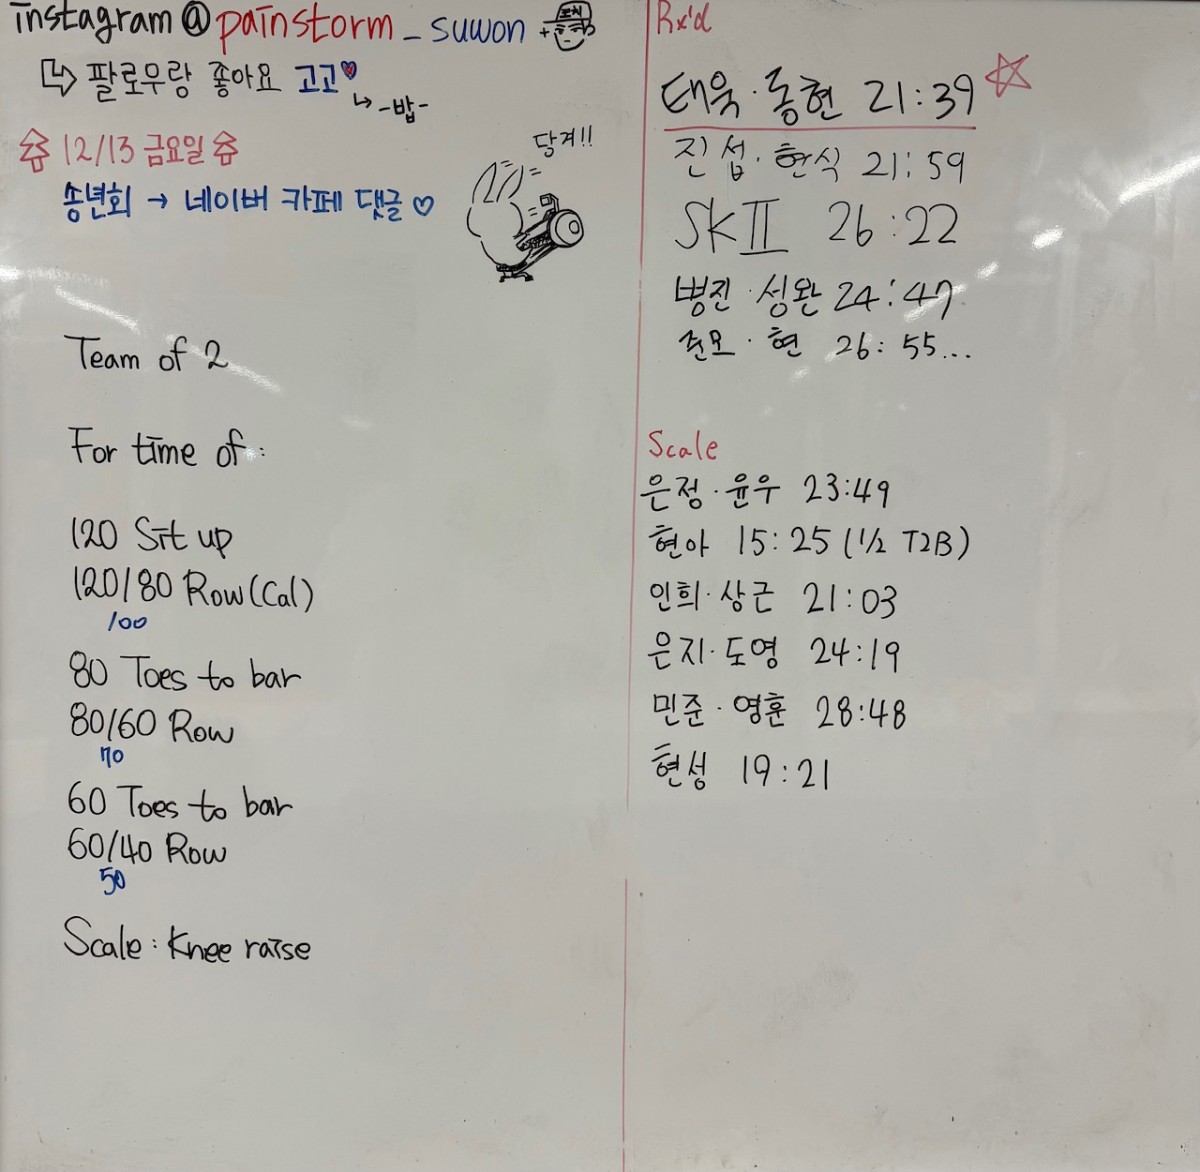 instagram@painstorm_suwon +
코치
팔로우랑 좋아요 고고
-밥-
12/13 금요일
송년회 → 네이버 카페 댓글 ♡
당겨!!
Team of 2
For time of :
120 Sit up
120/80 Row (Cal)
100
80 Toes to bar
80/60 Row
70
60 Toes to bar
60/40 Row
50
Scale : Knee raise
Rx'd
태욱·동현 21:39
진섭·현식 21:59
SKII 26:22
병진·성완 24:47
준모·현 26:55...
Scale
은정·윤우 23:49
현아 15:25 (1/2 T2B)
인희·상근 21:03
은지·도영 24:19
민준·영훈 28:48
현성 19:21